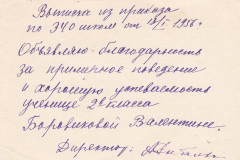 Выписка из приказа
по 940 школе от 18/I 1956г
Объявляю благодарность
за примерное поведение
и хорошую успеваемость
ученице 2б класса
Боровиковой Валентине.
Директор: